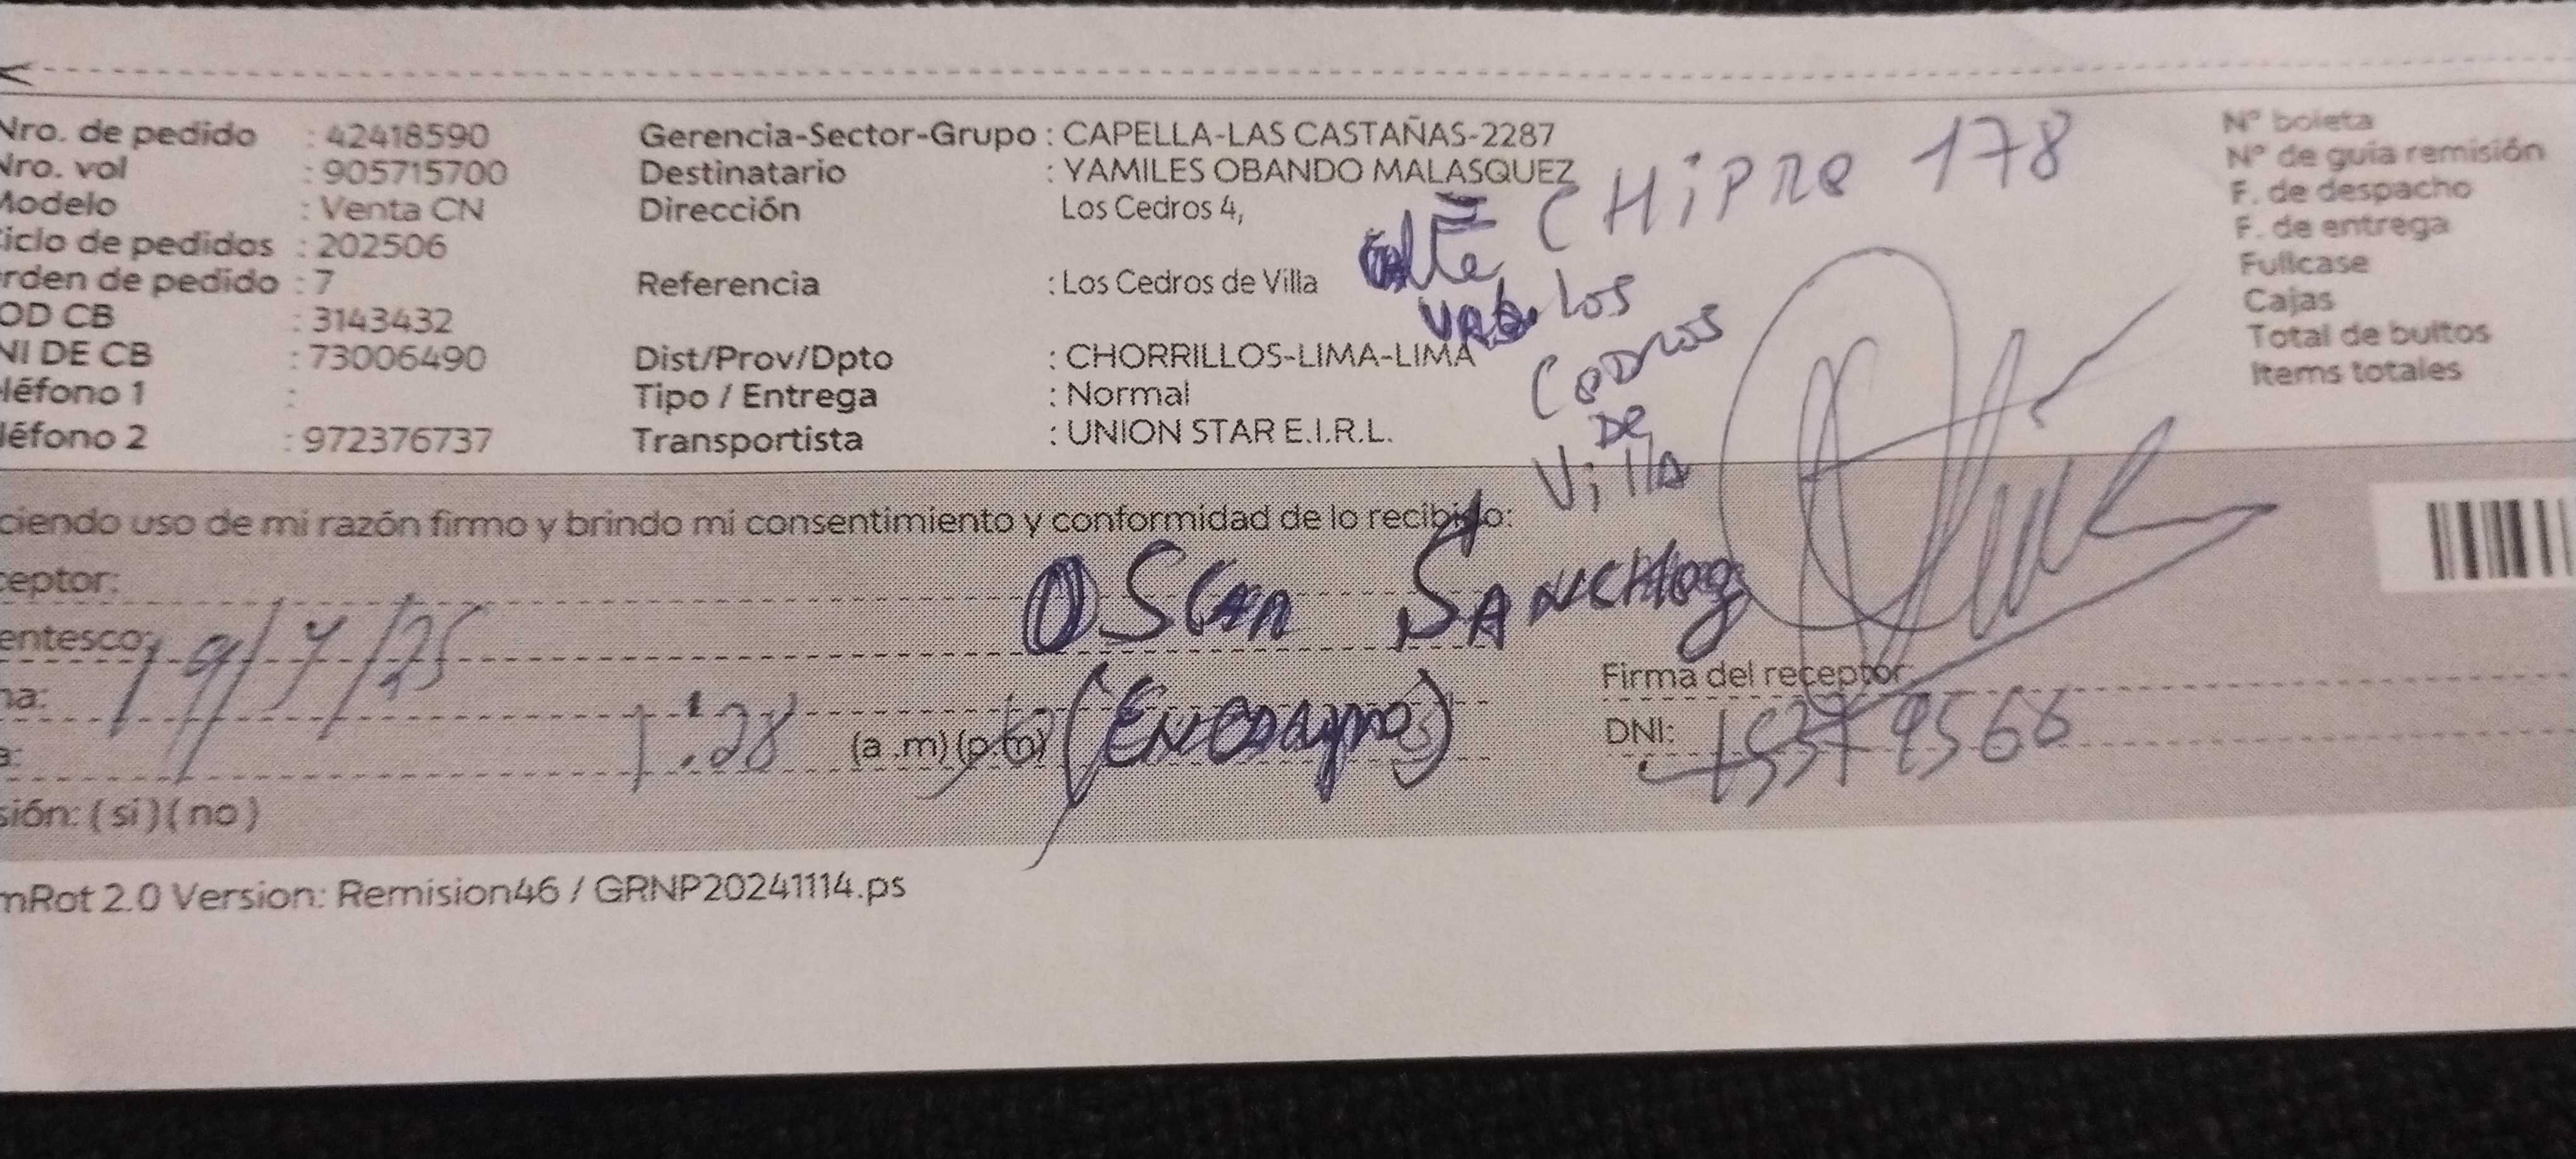 Nro. de pedido : 42418590
Nro. vol : 905715700
Modelo : Venta CN
iclo de pedidos : 202506
rden de pedido : 7
OD CB : 3143432
NI DE CB : 73006490
léfono 1 :
léfono 2 : 972376737
Gerencia-Sector-Grupo : CAPELLA-LAS CASTAÑAS-2287
Destinatario : YAMILES OBANDO MALASQUEZ
Dirección Los Cedros 4,
Referencia : Los Cedros de Villa
Dist/Prov/Dpto : CHORRILLOS-LIMA-LIMA
Tipo / Entrega : Normal
Transportista : UNION STAR E.I.R.L.
CHiPRe 178
Los
CeDROS
De
Villa
Nº boleta
Nº de guia remisión
F. de despacho
F. de entrega
Fullcase
Cajas
Total de bultos
Items totales
ciendo uso de mi razón firmo y brindo mi consentimiento y conformidad de lo recibido:
ceptor:
OSCAR
entesco:
19/4/25
na:
a: 1:28 (a .m) (p.m)
Firma del receptor
DNI:
sión: ( si ) ( no )
mRot 2.0 Version: Remision46 / GRNP20241114.ps